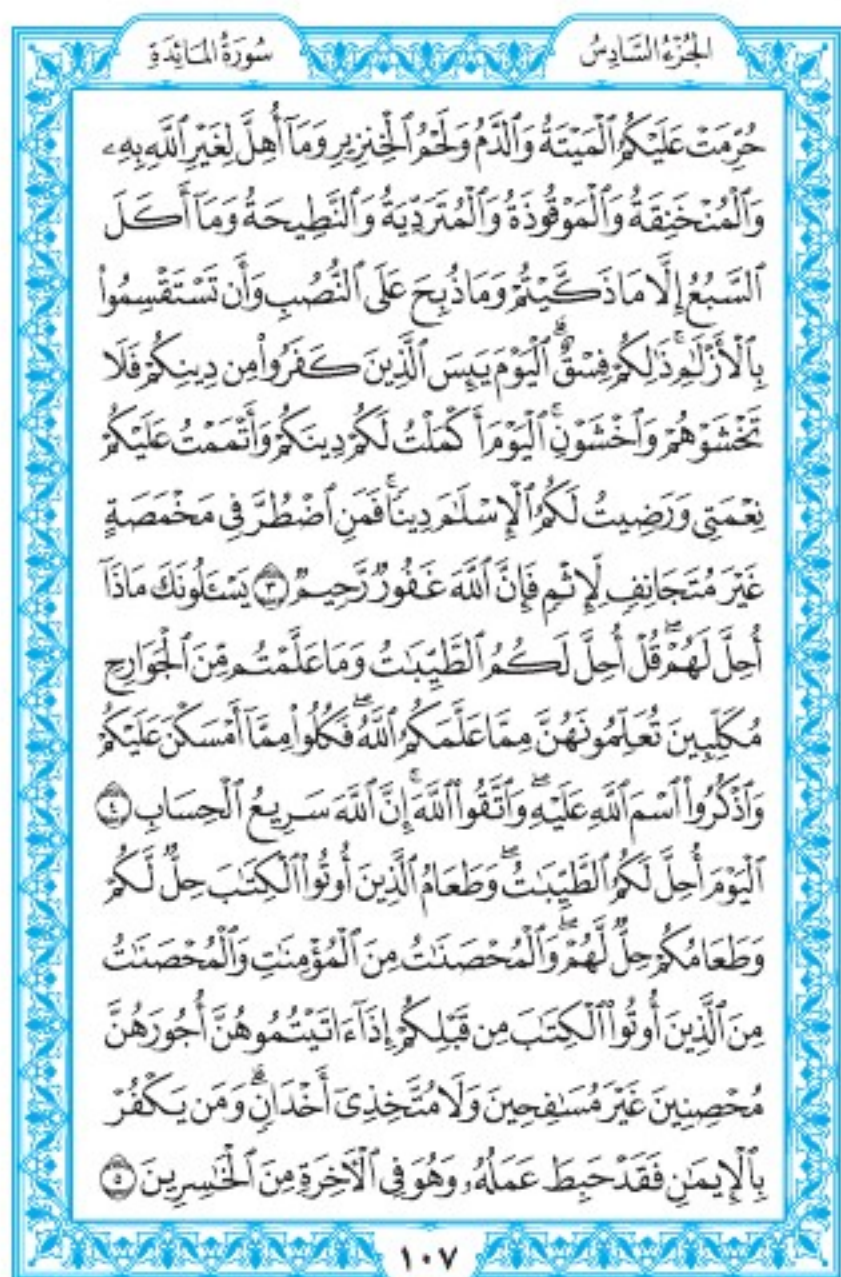 الجُزْءُ السَّادِسُ
سُورَةُ المَائِدَةِ
حُرِّمَتْ عَلَيْكُمُ ٱلْمَيْتَةُ وَٱلدَّمُ وَلَحْمُ ٱلْخِنزِيرِ وَمَآ أُهِلَّ لِغَيْرِ ٱللَّهِ بِهِۦ
وَٱلْمُنْخَنِقَةُ وَٱلْمَوْقُوذَةُ وَٱلْمُتَرَدِّيَةُ وَٱلنَّطِيحَةُ وَمَآ أَكَلَ
ٱلسَّبُعُ إِلَّا مَا ذَكَّيْتُمْ وَمَا ذُبِحَ عَلَى ٱلنُّصُبِ وَأَن تَسْتَقْسِمُوا۟
بِٱلْأَزْلَـٰمِ ۚ ذَٰلِكُمْ فِسْقٌ ۗ ٱلْيَوْمَ يَئِسَ ٱلَّذِينَ كَفَرُوا۟ مِن دِينِكُمْ فَلَا
تَخْشَوْهُمْ وَٱخْشَوْنِ ۚ ٱلْيَوْمَ أَكْمَلْتُ لَكُمْ دِينَكُمْ وَأَتْمَمْتُ عَلَيْكُمْ
نِعْمَتِى وَرَضِيتُ لَكُمُ ٱلْإِسْلَـٰمَ دِينًا ۚ فَمَنِ ٱضْطُرَّ فِى مَخْمَصَةٍ
غَيْرَ مُتَجَانِفٍ لِّإِثْمٍ فَإِنَّ ٱللَّهَ غَفُورٌ رَّحِيمٌ ٣ يَسْـَٔلُونَكَ مَاذَآ
أُحِلَّ لَهُمْ ۖ قُلْ أُحِلَّ لَكُمُ ٱلطَّيِّبَـٰتُ وَمَا عَلَّمْتُم مِّنَ ٱلْجَوَارِحِ
مُكَلِّبِينَ تُعَلِّمُونَهُنَّ مِمَّا عَلَّمَكُمُ ٱللَّهُ ۖ فَكُلُوا۟ مِمَّآ أَمْسَكْنَ عَلَيْكُمْ
وَٱذْكُرُوا۟ ٱسْمَ ٱللَّهِ عَلَيْهِ ۖ وَٱتَّقُوا۟ ٱللَّهَ ۚ إِنَّ ٱللَّهَ سَرِيعُ ٱلْحِسَابِ ٤
ٱلْيَوْمَ أُحِلَّ لَكُمُ ٱلطَّيِّبَـٰتُ ۖ وَطَعَامُ ٱلَّذِينَ أُوتُوا۟ ٱلْكِتَـٰبَ حِلٌّ لَّكُمْ
وَطَعَامُكُمْ حِلٌّ لَّهُمْ ۖ وَٱلْمُحْصَنَـٰتُ مِنَ ٱلْمُؤْمِنَـٰتِ وَٱلْمُحْصَنَـٰتُ
مِنَ ٱلَّذِينَ أُوتُوا۟ ٱلْكِتَـٰبَ مِن قَبْلِكُمْ إِذَآ ءَاتَيْتُمُوهُنَّ أُجُورَهُنَّ
مُحْصِنِينَ غَيْرَ مُسَـٰفِحِينَ وَلَا مُتَّخِذِىٓ أَخْدَانٍ ۗ وَمَن يَكْفُرْ
بِٱلْإِيمَـٰنِ فَقَدْ حَبِطَ عَمَلُهُۥ وَهُوَ فِى ٱلْـَٔاخِرَةِ مِنَ ٱلْخَـٰسِرِينَ ٥
١٠٧